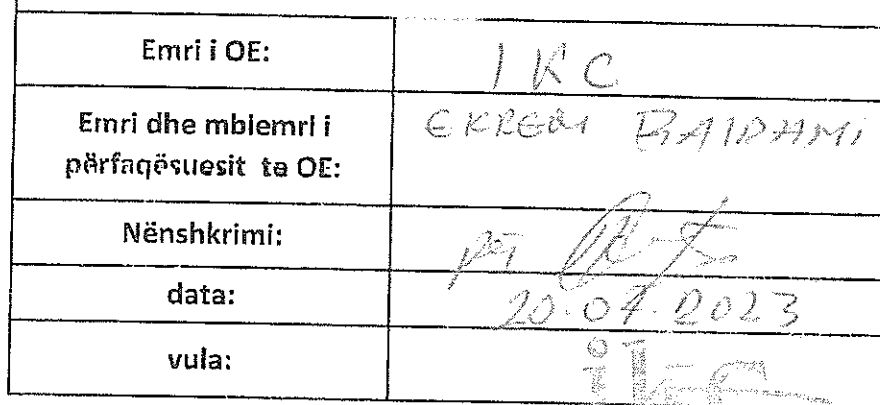 Emri i OE:
IKC
Emri dhe mbiemri i
përfaqësuesit te OE:
EKREM BAJRAMI
Nënshkrimi:
për
data:
20.07.2023
vula:
ikc